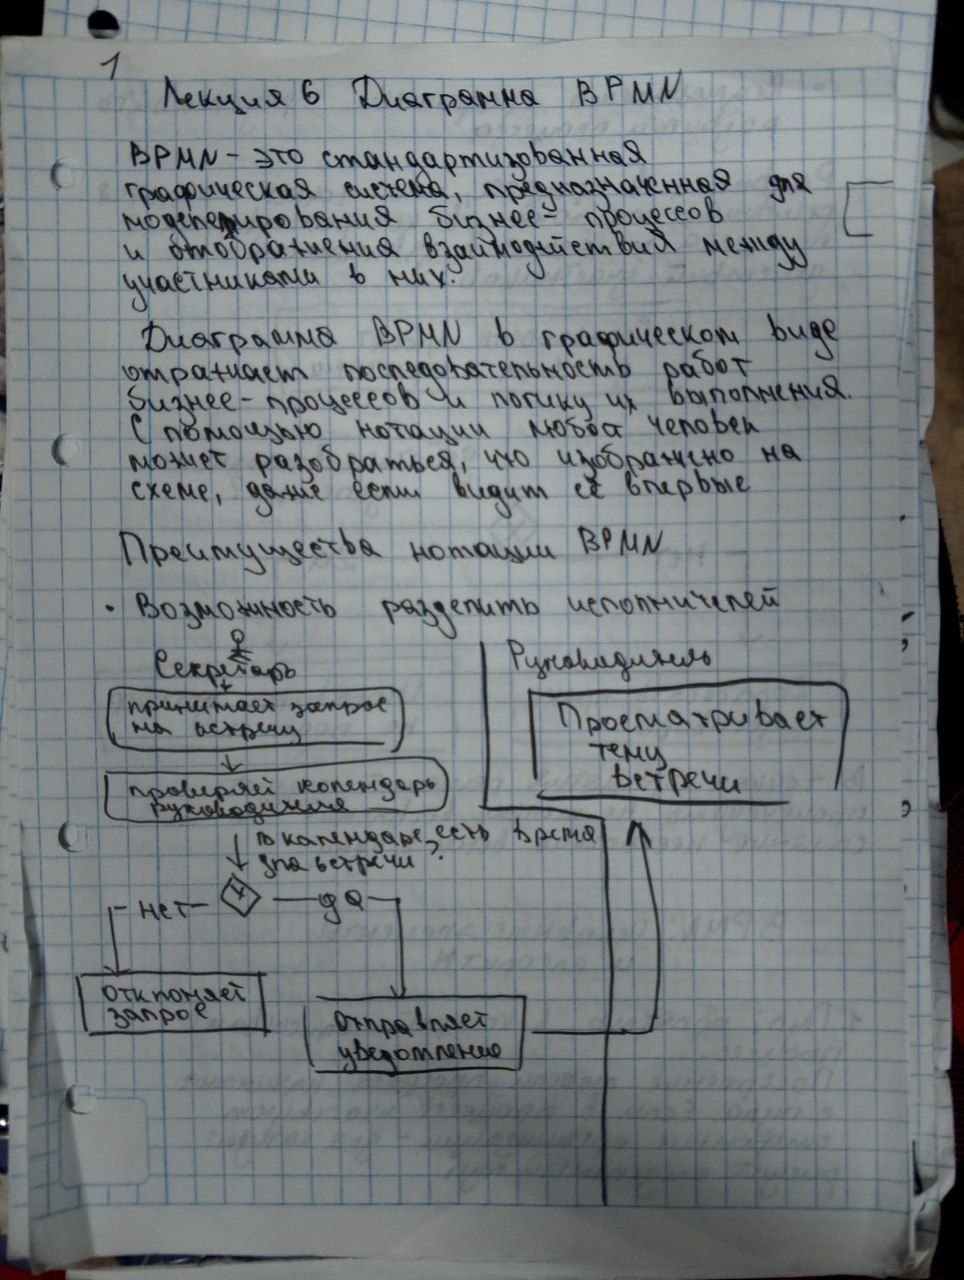 1
Лекция 6 Диаграмма BPMN
BPMN - это стандартизованная
графическая система, предназначенная для
моделирования бизнес-процессов
и отображения взаимодействия между
участниками в них.
Диаграмма BPMN в графическом виде
отражает последовательность работ
бизнес-процессов и логику их выполнения.
С помощью нотации любой человек
может разобраться, что изображено на
схеме, даже если видит её впервые
Преимущества нотации BPMN
• Возможность разделить исполнителей
Секретарь
принимает запрос
на встречу
проверяет календарь
руководителя
В календаре есть время
для встречи?
нет
да
отклоняет
запрос
отправляет
уведомление
Руководитель
Просматривает
тему
встречи